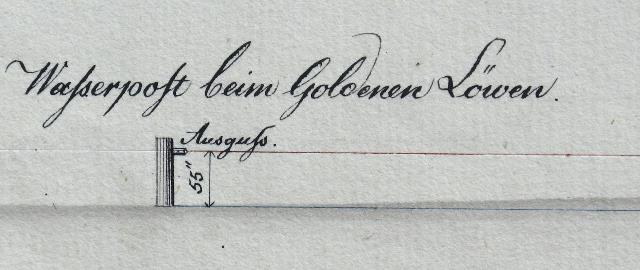 Waſserpoſt beim Goldenen Löwen.
Ausguſs.
55"